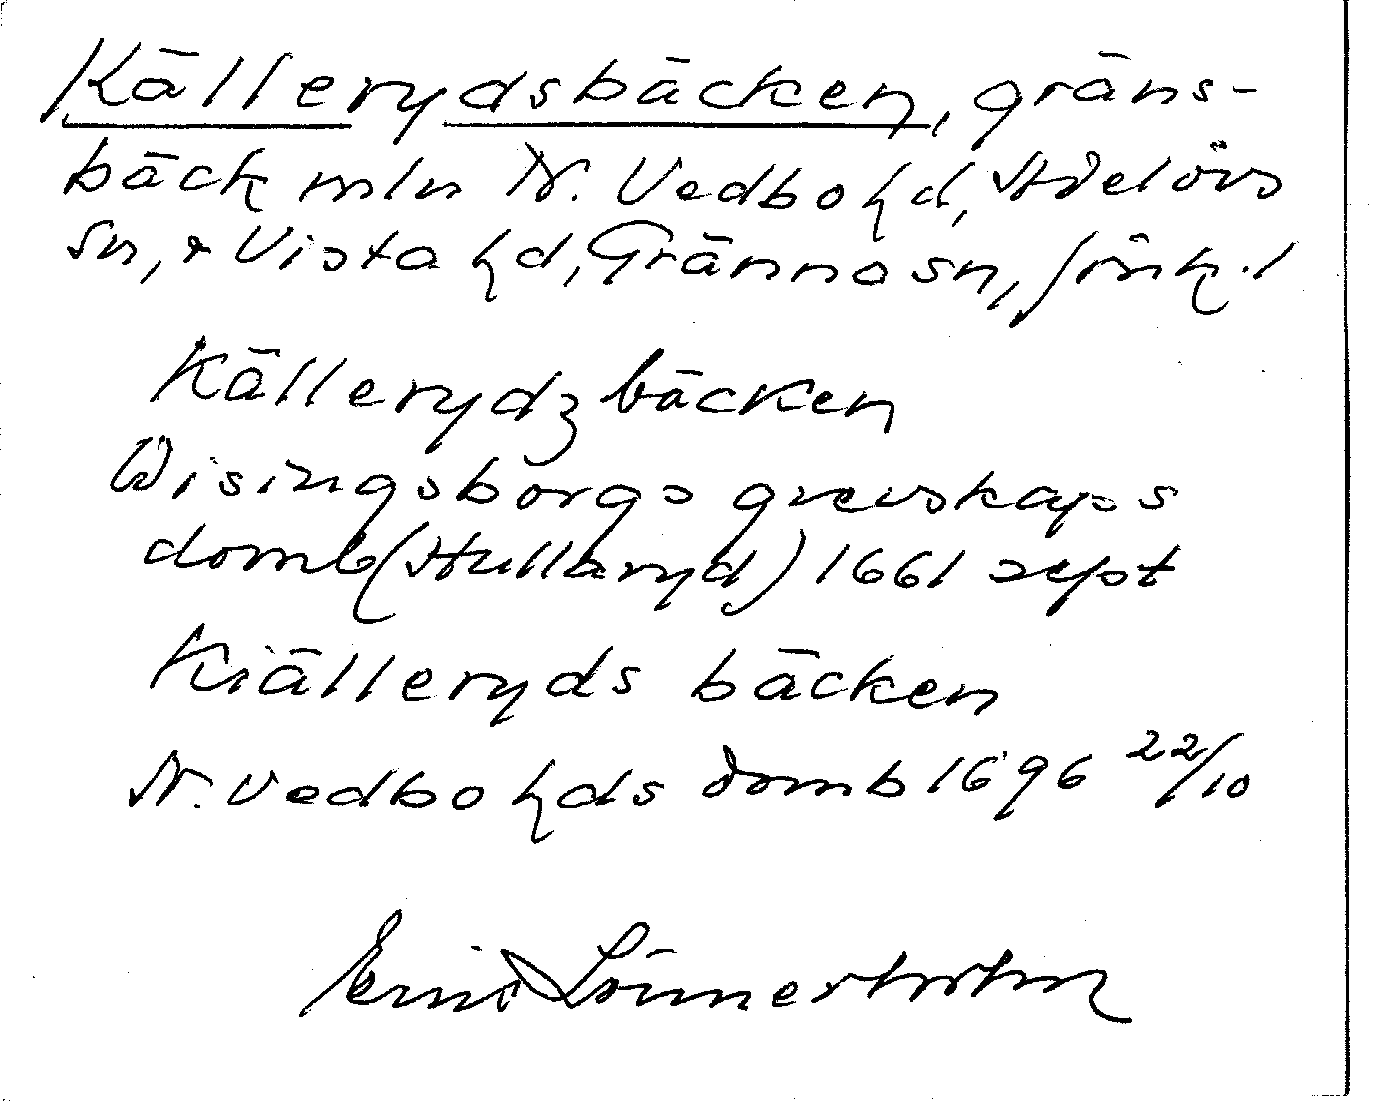 Källerydsbäcken, gräns-
bäck mln N. Vedbo hd, Adelövs
sn, & Vista hd, Gränna sn, Jönk. l
Källerydz bäcken
Wisingsborgs grevskaps
domb (Hullaryd) 1661 sept
Kiälleryds bäcken
N. Vedbo hds domb 1696 22/10